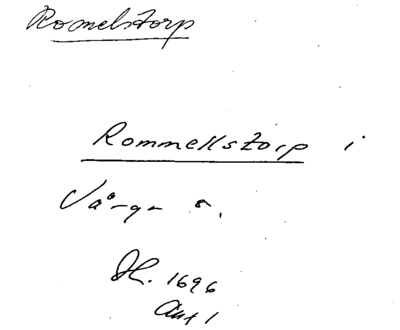 Romelstorp
Rommellstorp i
Vånga s.
Jk. 1696
Ant 1